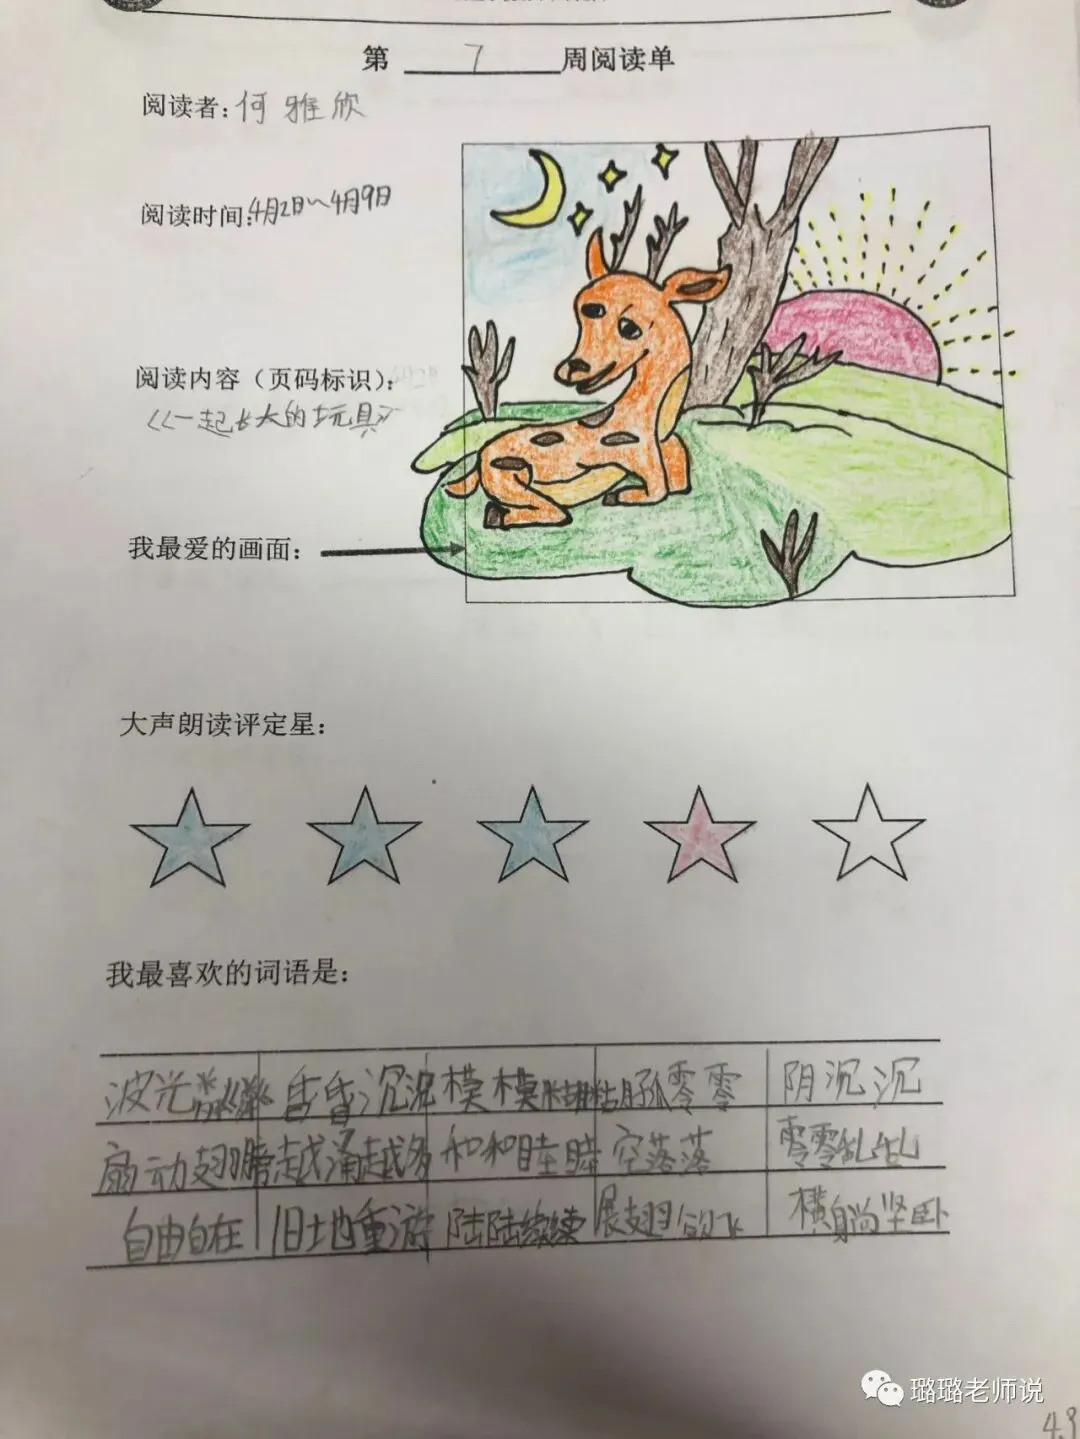 第 7 周阅读单
阅读者：何雅欣
阅读时间：4月2日~4月9日
阅读内容（页码标识）：
《一起长大的玩具》
我最爱的画面：
大声朗读评定星：
我最喜欢的词语是：
波光粼粼 昏昏沉沉 模模糊糊 孤零零 阴沉沉
扇动翅膀 越涌越多 空落落 零零乱乱
自由自在 旧地重游 陆陆续续 展翅欲飞 横躺坚卧
璐璐老师说
4.9